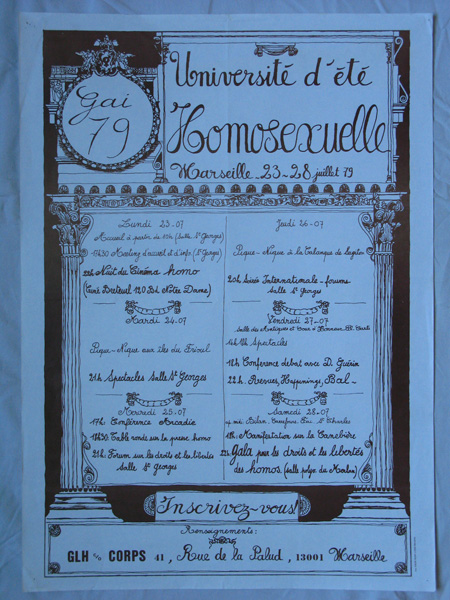 Gai
79
Université d'été
Homosexuelle
Marseille 23-28 juillet 79
Lundi 23-07
Accueil à partir de 15h (Salle St Georges)
Meeting d'accueil et d'info. (St Georges)
22h Nuit du Cinéma homo
(Ciné Breteuil 120 Bd Notre Dame)
Mardi 24-07
Pique-Nique aux îles du Frioul
21h Spectacles Salle St Georges
Mercredi 25-07
17h Conférence Arcadie
18h30 Table ronde sur la presse homo
21h Forum sur les droits et les libertés
salle St Georges
Jeudi 26-07
Pique-Nique à la Calanque de
20h Soirée Internationale-
salle St Georges
Vendredi 27-07
Salle des
Spectacles
18h Conference debat avec D. Guérin
22h. Revues, Happenings, Bal-
Samedi 28-07
St Charles
Manifestation sur la Canebière
22h gala pour les droits et les libertés
des homos. (salle
Inscrivez-vous!
Renseignements:
GLH c/o CORPS 41, Rue de la Palud, 13001 Marseille